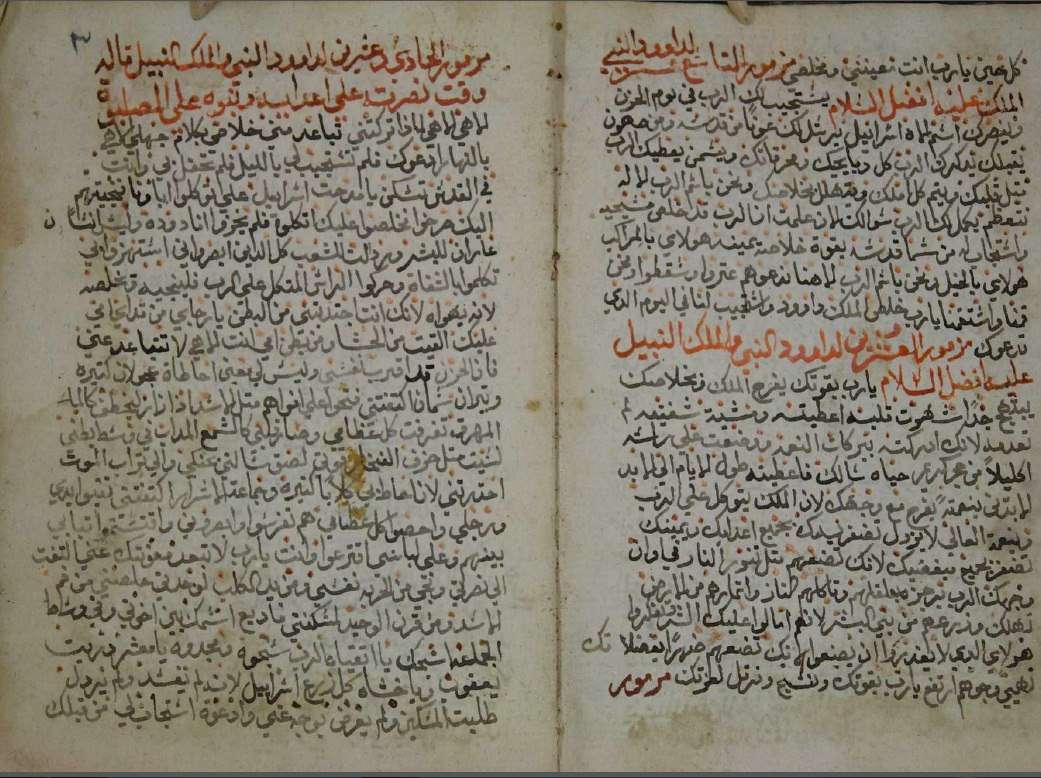 كل حين يا رب انت تعينني ومخلصي مزمور التاسع عشر لداوود النبي
الملك عليه افضل السلام يستجيب لك الرب في يوم الحزن
وينصرك اسم اله اسرائيل يرسل لك عونا من قدسه ومن صهيون
يقبلك يذكر لك الرب كل دبايحك ومحرقاتك ويسمن يعطيك الرب
مثل قلبك ويتم كل املك ونتهلل بخلاصك ونحن باسم الرب الاله
نتعظم يكمل لك الرب سوالك الان علمت ان الرب قد خلص مسيحه
واستجاب له من سما قدسه بقوة خلاصه يمينه هولاي بالمراكب
هولاي بالخيل ونحن باسم الرب الاهنا ندعوا هم عتروا وسقطوا ونحن
قمنا واستقمنا يا رب خلص الملك داوود واستجيب لنا في اليوم الدي
ندعوك مزمور العشرين لداوود النبي والملك النبيل
عليه افضل السلام يا رب بقوتك يفرح الملك وبخلاصك
يبتهج جدا شهوت قلبه اعطيته ومشية شفتيه لم
تعدمه لانك ادركته ببركات النعمه ووضعت على راسه
اكليلا من حجر كريم حياه سالك فاعطيته طول الايام الى الابد
لان الملك يتوكل على الرب
وبنعمة العالي لا يزول تصفر يدك بجميع اعدايك ويمينك
تضفر بجميع مبغضيك لانك تصيرهم متل تنور النار في اوان
وجهك الرب برجزه يقلقهم وتاكلهم النار واتمارهم من الارض
تهلك وزرعهم من بني البشر لانهم امالوا عليك الشر وفكروا
هولاي الدي لا يقدروا ان يصنعوا لانك تصيرهم ضهرا بفضلا تك
تهيي وجوههم ارتفع يا رب بقوتك ونسبح ونرتل لعزتك مزمور
٣
مزمور الحادي وعشرين لداوود النبي والملك النبيل قاله
وقت نصرته على اعدايه ونبوه على الصلبوت
الاهي الاهي لمادا تركتني تباعد مني خلاصي بكلام جهلي الاهي
بالنهار ادعوك فلم تستجيب لي بالليل فلم تحفل بي وانت
في القديس تسكن يا مدحت اسراييل عليك اتوكلوا ابانا فنجيتهم
اليك صرخوا فخلصوا عليك اتكلوا فلم يخزوا انا دوده وليس انسان
عار انا للبشر ورذالت للشعب كل الدين ابصروني استهزوا بي
تكلموا بالشفاة وحركوا الراس المتكل على الرب فلينجيه وتخلصه
لانه يهواه لانك انت اجتدبتني من البطن يا رجاي من تديي امي
عليك القيت من الحشا ومن بطن امي انت الاهي لا تتباعد عني
فان الحزن قد اقترب مني وليس لي معين احاطت بي عجول كتيره
وتيران سمان اكتنفتني فتحوا علي افواههم متل الاسد اذا زار ليخطف كالماء
المهرق تفرقت كل عضامي وصار قلبي كالشمع المداب في وسط بطني
يبست متل خزف الفخار قوتي لصق لساني بحنكي والى تراب الموت
احدرتني لان احاط بي كلابا كتيره وجماعة الاشرار اكتنفتني تقبوا يدي
ورجلي واحصوا كل عضامي هم تفرسوا وابصروني واقتسموا تيابي
بينهم وعلى لباسي اقترعوا وانت يا رب لا تبعد معونتك عني التفت
الى نصرتي ونجي من الحربه نفسي ومن يد الكلب لوحدتي خلصني من فم
الاسد ومن قرن الوحيد لمسكنتي فاديع اسمك بين اخوتي وفي وسط
الجماعه اسبحك يا اتقياء الرب سبحوه ومجدوه يا معشر دريت
يعقوب ويخشاه كل زرع اسراييل لانه لم تفسد ولم يردل
طلبت المسكين ولم يعرض بوجهه عني وادعوه استجاب لي من قبلك